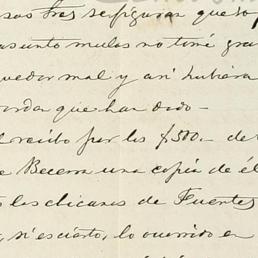 sas tres se figuran que so
asunto mulas no tomé gra
quedar mal y así hubiera
orda que han dado —
l recibo por los $500.- de
e Becerra una copia de él
s las chicanas de Fuentes
, si es cierto, lo ocurrido en